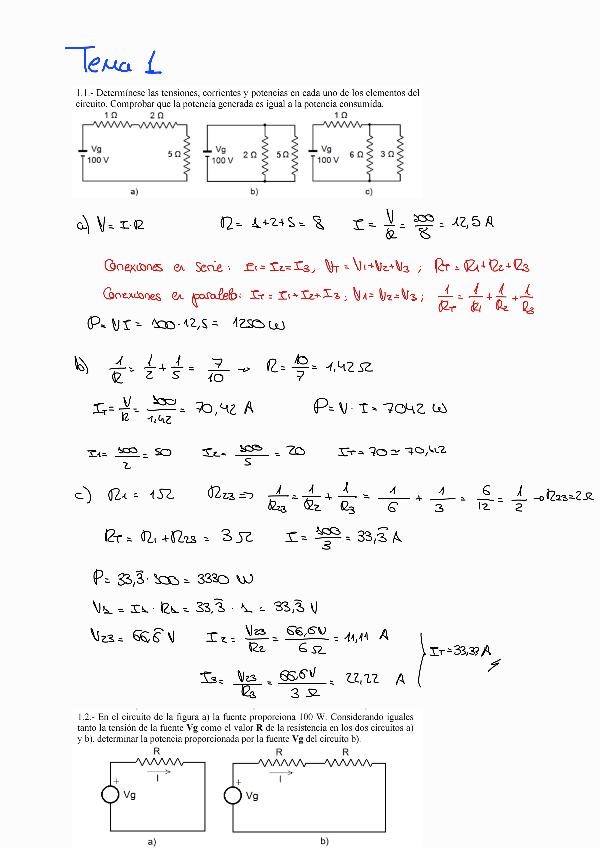 Tema 1
1.1.- Determínese las tensiones, corrientes y potencias en cada uno de los elementos del
circuito. Comprobar que la potencia generada es igual a la potencia consumida.
1 Ω 2 Ω 1 Ω
Vg 100 V 5 Ω Vg 100 V 2 Ω 5 Ω Vg 100 V 6 Ω 3 Ω
a) b) c)
a) V = I·R R = 1+2+5 = 8 I = V/R = 100/8 = 12,5 A
Conexiones en serie: I1 = I2 = I3, VT = V1+V2+V3 ; RT = R1+R2+R3
Conexiones en paralelo: IT = I1+I2+I3 ; V1 = V2 = V3 ; 1/RT = 1/R1 + 1/R2 + 1/R3
P = VI = 100·12,5 = 1250 W
b) 1/R = 1/2 + 1/5 = 7/10 → R = 10/7 = 1,42 Ω
IT = V/R = 100/1,42 = 70,42 A P = V·I = 7042 W
I1 = 100/2 = 50 I2 = 100/5 = 20 IT = 70 ≃ 70,42
c) R1 = 1Ω R23 ⇒ 1/R23 = 1/R2 + 1/R3 = 1/6 + 1/3 = 6/12 = 1/2 → R23 = 2Ω
RT = R1 + R23 = 3 Ω I = 100/3 = 33,3 A
P = 33,3 · 100 = 3330 W
V1 = I1 · R1 = 33,3 · 1 = 33,3 V
V23 = 66,6 V I2 = V23/R2 = 66,6V/6 Ω = 11,11 A
I3 = V23/R3 = 66,6V/3 Ω = 22,22 A
IT = 33,33 A
1.2.- En el circuito de la figura a) la fuente proporciona 100 W. Considerando iguales
tanto la tensión de la fuente Vg como el valor R de la resistencia en los dos circuitos a)
y b), determinar la potencia proporcionada por la fuente Vg del circuito b).
R R R
I I
+ Vg + Vg
a) b)